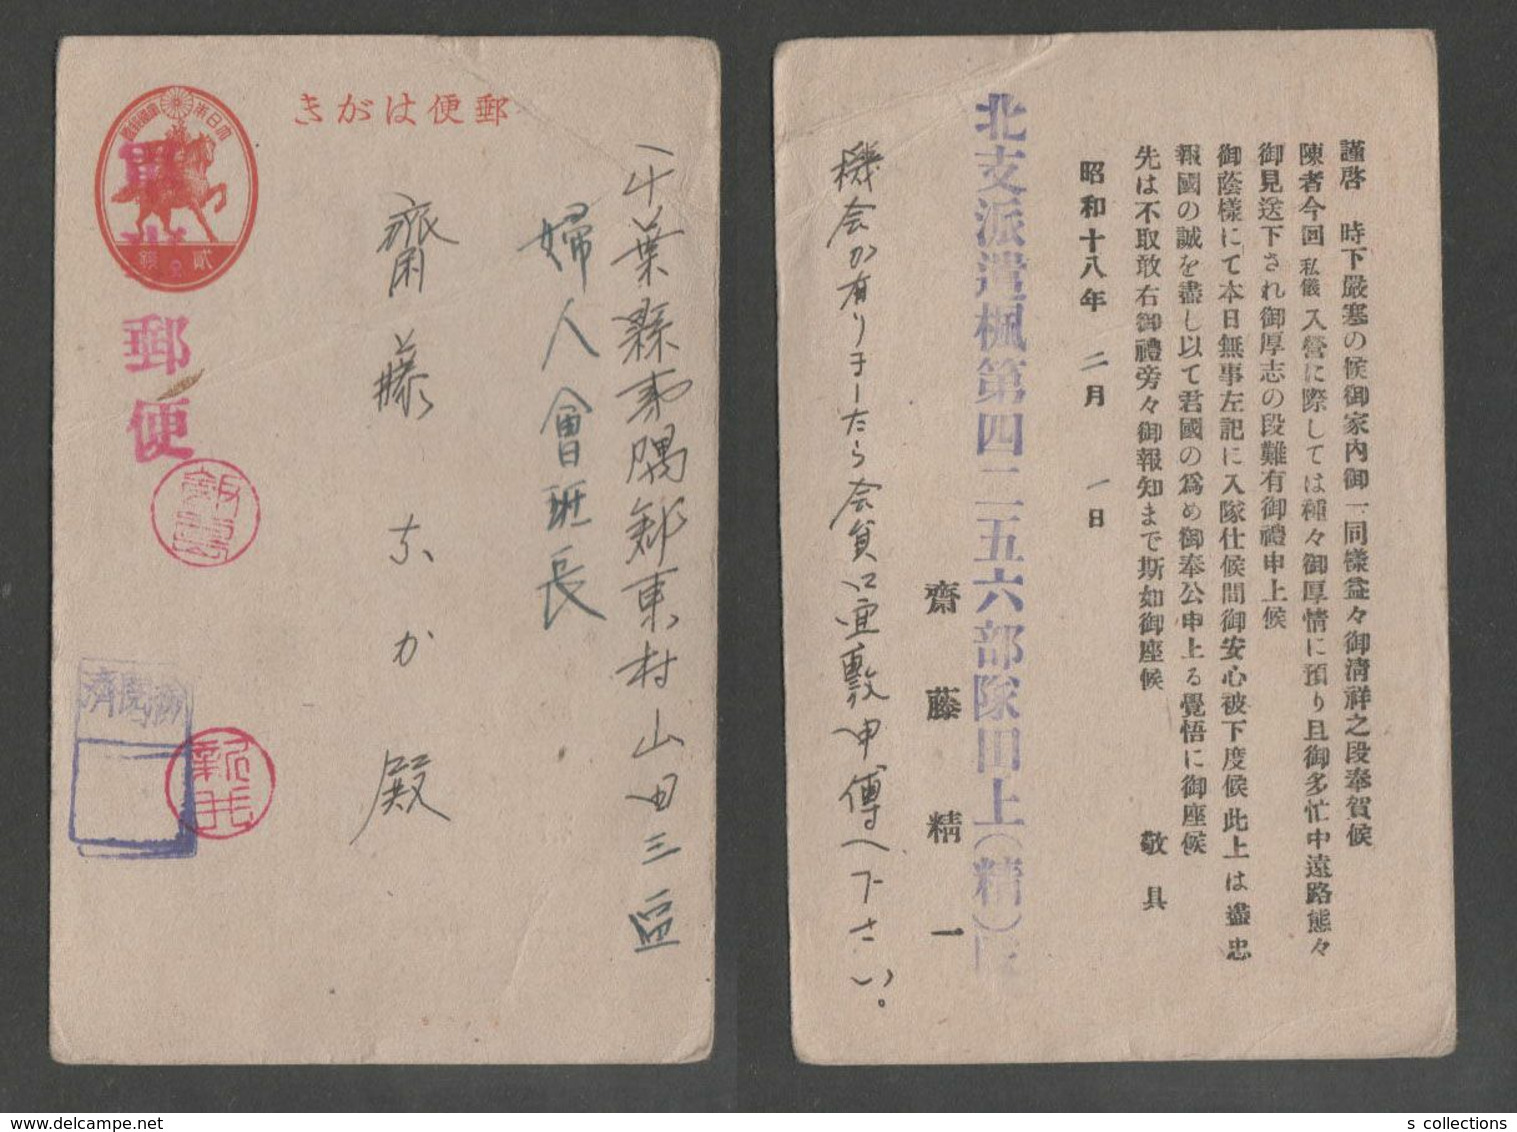 郵便はがき
大日本帝國郵便
貳銭
軍事
郵便
千葉縣夷隅郡東村山田三區
婦人會班長
齋藤たか殿
検閲濟
謹啓 時下嚴塞の候御家内御一同樣益々御淸祥之段奉賀候
陳者今回私儀入營に際しては種々御厚情に預り且御多忙中遠路態々
御見送下され御厚志の段難有御禮申上候
御蔭樣にて本日無事左記に入隊仕候間御安心被下度候此上は盡忠
報國の誠を盡し以て君國の爲め御奉公申上る覺悟に御座候
先は不取敢右御禮旁々御報知まで斯如御座候 敬具
昭和十八年二月一日
北支派遣楓第四二五六部隊田上(精)隊
齋藤精一
機会か有りましたら会員に宜敷申傳へ下さい。
s collections